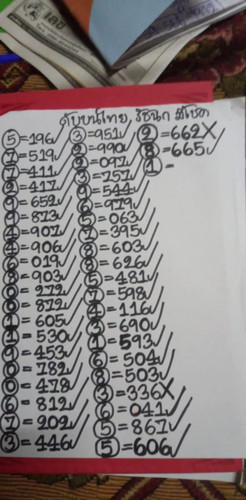 ดับบนไทย, รัชนก มีโชค
5=196✓
7=519✓
7=411✓
2=417✓
9=652✓
9=873✓
=907✓
=906✓
6=019✓
0=903✓
0=272✓
=872✓
=605✓
=530✓
9=453✓
0=782✓
0=478✓
6=812✓
7=202✓
3=446✓
3=951✓
2=990✓
2=097✓
3=757✓
9=544✓
6=979✓
5=063✓
7=395✓
3=603✓
3=626✓
5=481✓
7=598✓
4=116✓
3=690✓
1=593✓
6=504✓
8=503✓
3=336X
6=041✓
5=867✓
5=606✓
2=662X
8=665✓
1 -